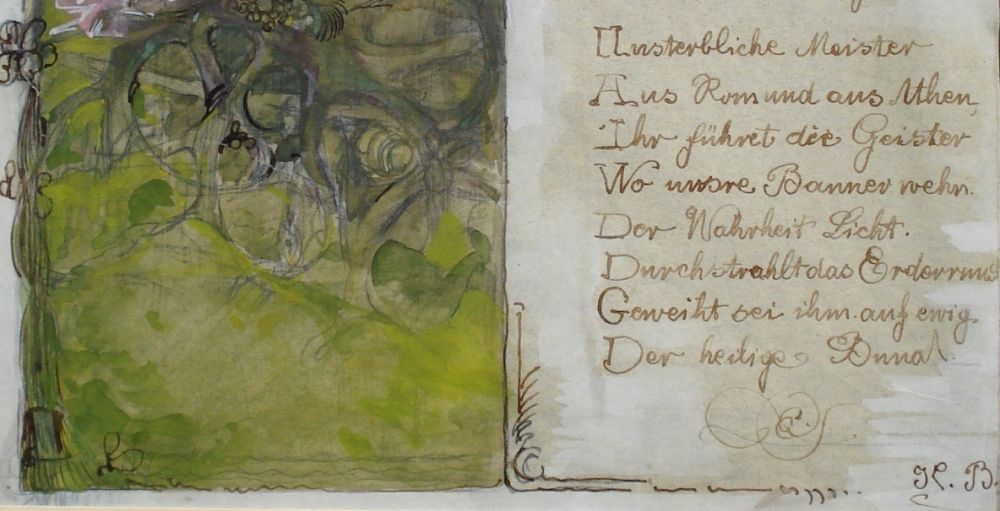 Unsterbliche Meister
Aus Rom und aus Athen,
Ihr führet die Geister
Wo unsre Banner wehn.
Der Wahrheit Licht.
Durchstrahlt das Erdenrund
Geweiht sei ihm auf ewig.
Der heilige Bund.
C.
K. B.